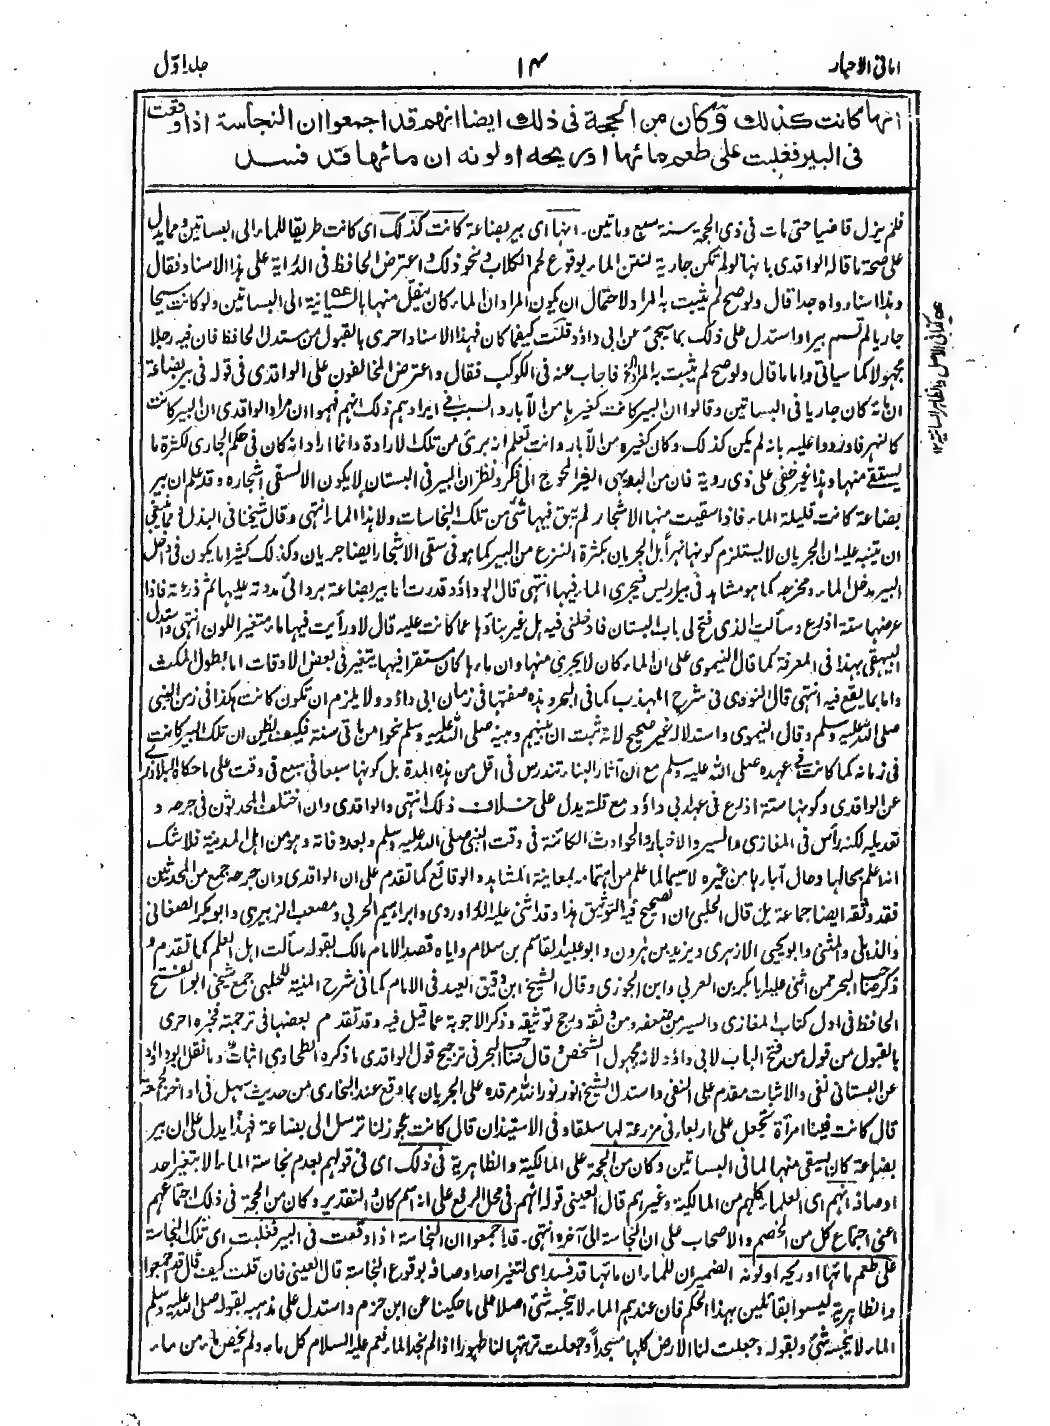 امانى الاحبار ١٤ جلد اوّل
انها كانت كذلك وكان من الحجة فى ذلك ايضا انهم قد اجمعوا ان النجاسة اذا وقعت
فى البير فغلبت على طعم مائها او ريحه او لونه ان مائها قد فسد
فلم يزل قاضيا حتى مات فى ذى الحجة سنة سبع وماتين. انها اى بير بضاعة كانت كذلك اى كانت طريقا للماء الى البساتين ومما يدل
على صحة ما قاله الواقدى بانها لو لم تكن جارية لنتن الماء بوقوع لحم الكلاب ونحو ذلك واعترض الحافظ فى الدراية على هذا الاسناد فقال
وهذا اسناد واه جدا قال ولو صح لم يثبت به المراد لاحتمال ان يكون المراد ان الماء كان ينقل منها بالسانية الى البساتين ولو كانت سيحا
جاريا لم تسم بيرا واستدل على ذلك بما سيجئ عن ابى داؤد قلت كيفما كان فهذا الاسناد احرى بالقبول من مستدل الحافظ فان فيه رجلا
مجهولا كما سياتى واما ما قال ولو صح لم يثبت به المراد الخ فاجاب عنه فى الكوكب فقال واعترض المخالفون على الواقدى فى قوله فى بير بضاعة
ان ماءه كان جاريا فى البساتين وقالوا ان البير كانت كغيرها من الآبار والسبب فى ايرادهم ذلك انهم فهموا ان مراد الواقدى ان البير كانت
كالنهر فاوردوا عليه بانه لم يكن كذلك وكان كغيره من الآبار وانت تعلم انه برئ من تلك الارادة وانما اراد انه كان فى حكم الجارى لكثرة ما
يستقى منها وهذا غير خفى على ذى روية فان من البديهى الغير المحوج الى فكر ونظر ان البير فى البستان لا يكون الا لسقى اشجاره وقد علم ان بير
بضاعة كانت قليلة الماء فاذا سقيت منها الاشجار لم تبق فيها شئ من تلك النجاسات ولا هذا الماء انتهى وقال شيخنا فى البذل مما ينبغى
ان يتنبه عليه ان الجريان لا يستلزم كونها نهرا بل الجريان بكثرة النزع من البير كما هو فى سقى الاشجار ايضا جريان وكذلك كثيرا ما يكون فى داخل
البير مدخل الماء ومخرجه كما هو مشاهد فى بير اريس فيجرى الماء فيها انتهى قال ابو داؤد قدرت انا بير بضاعة بردائى مددته عليها ثم ذرعته فاذا
عرضها ستة اذرع وسألت الذى فتح لى باب البستان فادخلنى فيه هل غير بناؤها عما كانت عليه قال لا ورأيت فيها ماء متغير اللون انتهى واستدل
البيهقى بهذا فى المعرفة كما قال النيموى على ان الماء كان لا يجرى منها وان ماءها كان مستقرا فيها يتغير فى بعض الاوقات اما بطول المكث
واما بما يقع فيه انتهى قال النووى فى شرح المهذب كما فى البحر وهذه صفتها فى زمان ابى داؤد ولا يلزم ان تكون كانت هكذا فى زمن النبى
صلى الله عليه وسلم وقال النيموى واستدلاله غير صحيح لانه ثبت ان بينهم وبينه صلى الله عليه وسلم نحوا من ماتى سنة فكيف يظن ان تلك البير كانت
فى زمانه كما كانت فى عهده صلى الله عليه وسلم مع ان آثار البناء تندرس فى اقل من هذه المدة بل كونها سبعا فى سبع فى وقت على ما حكاه البلاذرى
عن الواقدى وكونها ستة اذرع فى عهد ابى داؤد مع قلته يدل على خلاف ذلك انتهى والواقدى وان اختلف المحدثون فى جرحه و
تعديله لكنه رأس فى المغازى والسير والاخبار والحوادث الكائنة فى وقت النبى صلى الله عليه وسلم وبعد وفاته وهو من اهل المدينة فلا شك
انه اعلم بحالها وحال آبارها من غيره لاسيما لما علم من اهتمامه بمعاينة المشاهد والوقائع كما تقدم على ان الواقدى وان جرحه جمع من المحدثين
فقد وثقه ايضا جماعة بل قال الحلبى ان الصحيح فيه التوثيق هذا وقد اثنى عليه الدراوردى وابراهيم الحربى ومصعب الزبيرى وابو بكر الصغانى
والذهلى والمثنى وابو يحيى الازهرى ويزيد بن هارون وابو عبيد القاسم بن سلام واياه قصد الامام مالك بقوله سألت اهل العلم كما تقدم و
ذكر صاحب البحر ممن اثنى عليه ابا بكر بن العربى وابن الجوزى وقال الشيخ ابن دقيق العيد فى الامام كما فى شرح المنية للحلبى جمع شيخى ابو الفتح
الحافظ فى اول كتاب المغازى والسير من ضعفه ومن وثقه ورجح توثيقه وذكر الاجوبة عما قيل فيه وقد تقدم بعضها فى ترجمته فخبره احرى
بالقبول من قول من فتح الباب لابى داؤد لانه مجهول الشخص وقال صاحب البحر فى ترجيح قول الواقدى ما ذكره الطحاوى اثبات وما نقل ابو داؤد
عن البستانى نفى والاثبات مقدم على النفى واستدل الشيخ الانور نور الله مرقده على الجريان بما وقع عند البخارى من حديث سهل فى اواخر الجمعة
قال كانت فينا امرأة تجعل على اربعاء فى مزرعة لها سلقا وفى الاستيذان قال كانت عجوز لنا ترسل الى بضاعة فهذا يدل على ان بير
بضاعة كان يسقى منها لما فى البساتين وكان من الحجة على المالكية والظاهرية فى ذلك اى فى قولهم بعدم نجاسة الماء الا بتغير احد
اوصافه انهم اى العلماء كلهم من المالكية وغيرهم قال العينى قوله انهم فى محل الرفع على انه اسم كان والتقدير وكان من الحجة فى ذلك اجماعهم
اعنى اجماع كل من الخصم والاصحاب على ان النجاسة الى آخره انتهى. قد اجمعوا ان النجاسة اذا وقعت فى البير فغلبت اى تلك النجاسة
على طعم مائها او ريحه او لونه الضميران للماء ان مائها قد فسد اى لتغير احد اوصافه بوقوع النجاسة قال العينى فان قلت كيف قال قد اجمعوا
والظاهرية ليسوا بقائلين بهذا الحكم فان عندهم الماء لا ينجسه شئ اصلا على ما حكينا عن ابن حزم واستدل على مذهبه بقوله صلى الله عليه وسلم
الماء لا ينجسه شئ وبقوله وجعلت لنا الارض كلها مسجدا وجعلت تربتها لنا طهورا اذا لم نجد الماء فعم عليه السلام كل ماء ولم يخص ماء من ماء
عه كذا فى الاصل والظاهر السانية ١٢